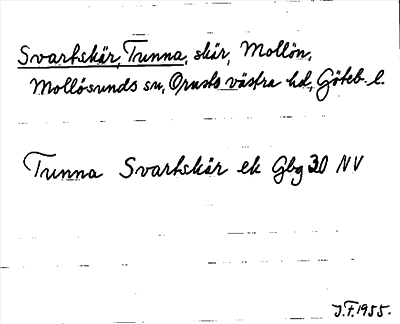 Svartskär, Tunna, skär, Mollön,
Mollösunds sn, Orusts västra hd, Göteb. l.
Tunna Svartskär ek Gbg 30 NV
J.F. 1955.